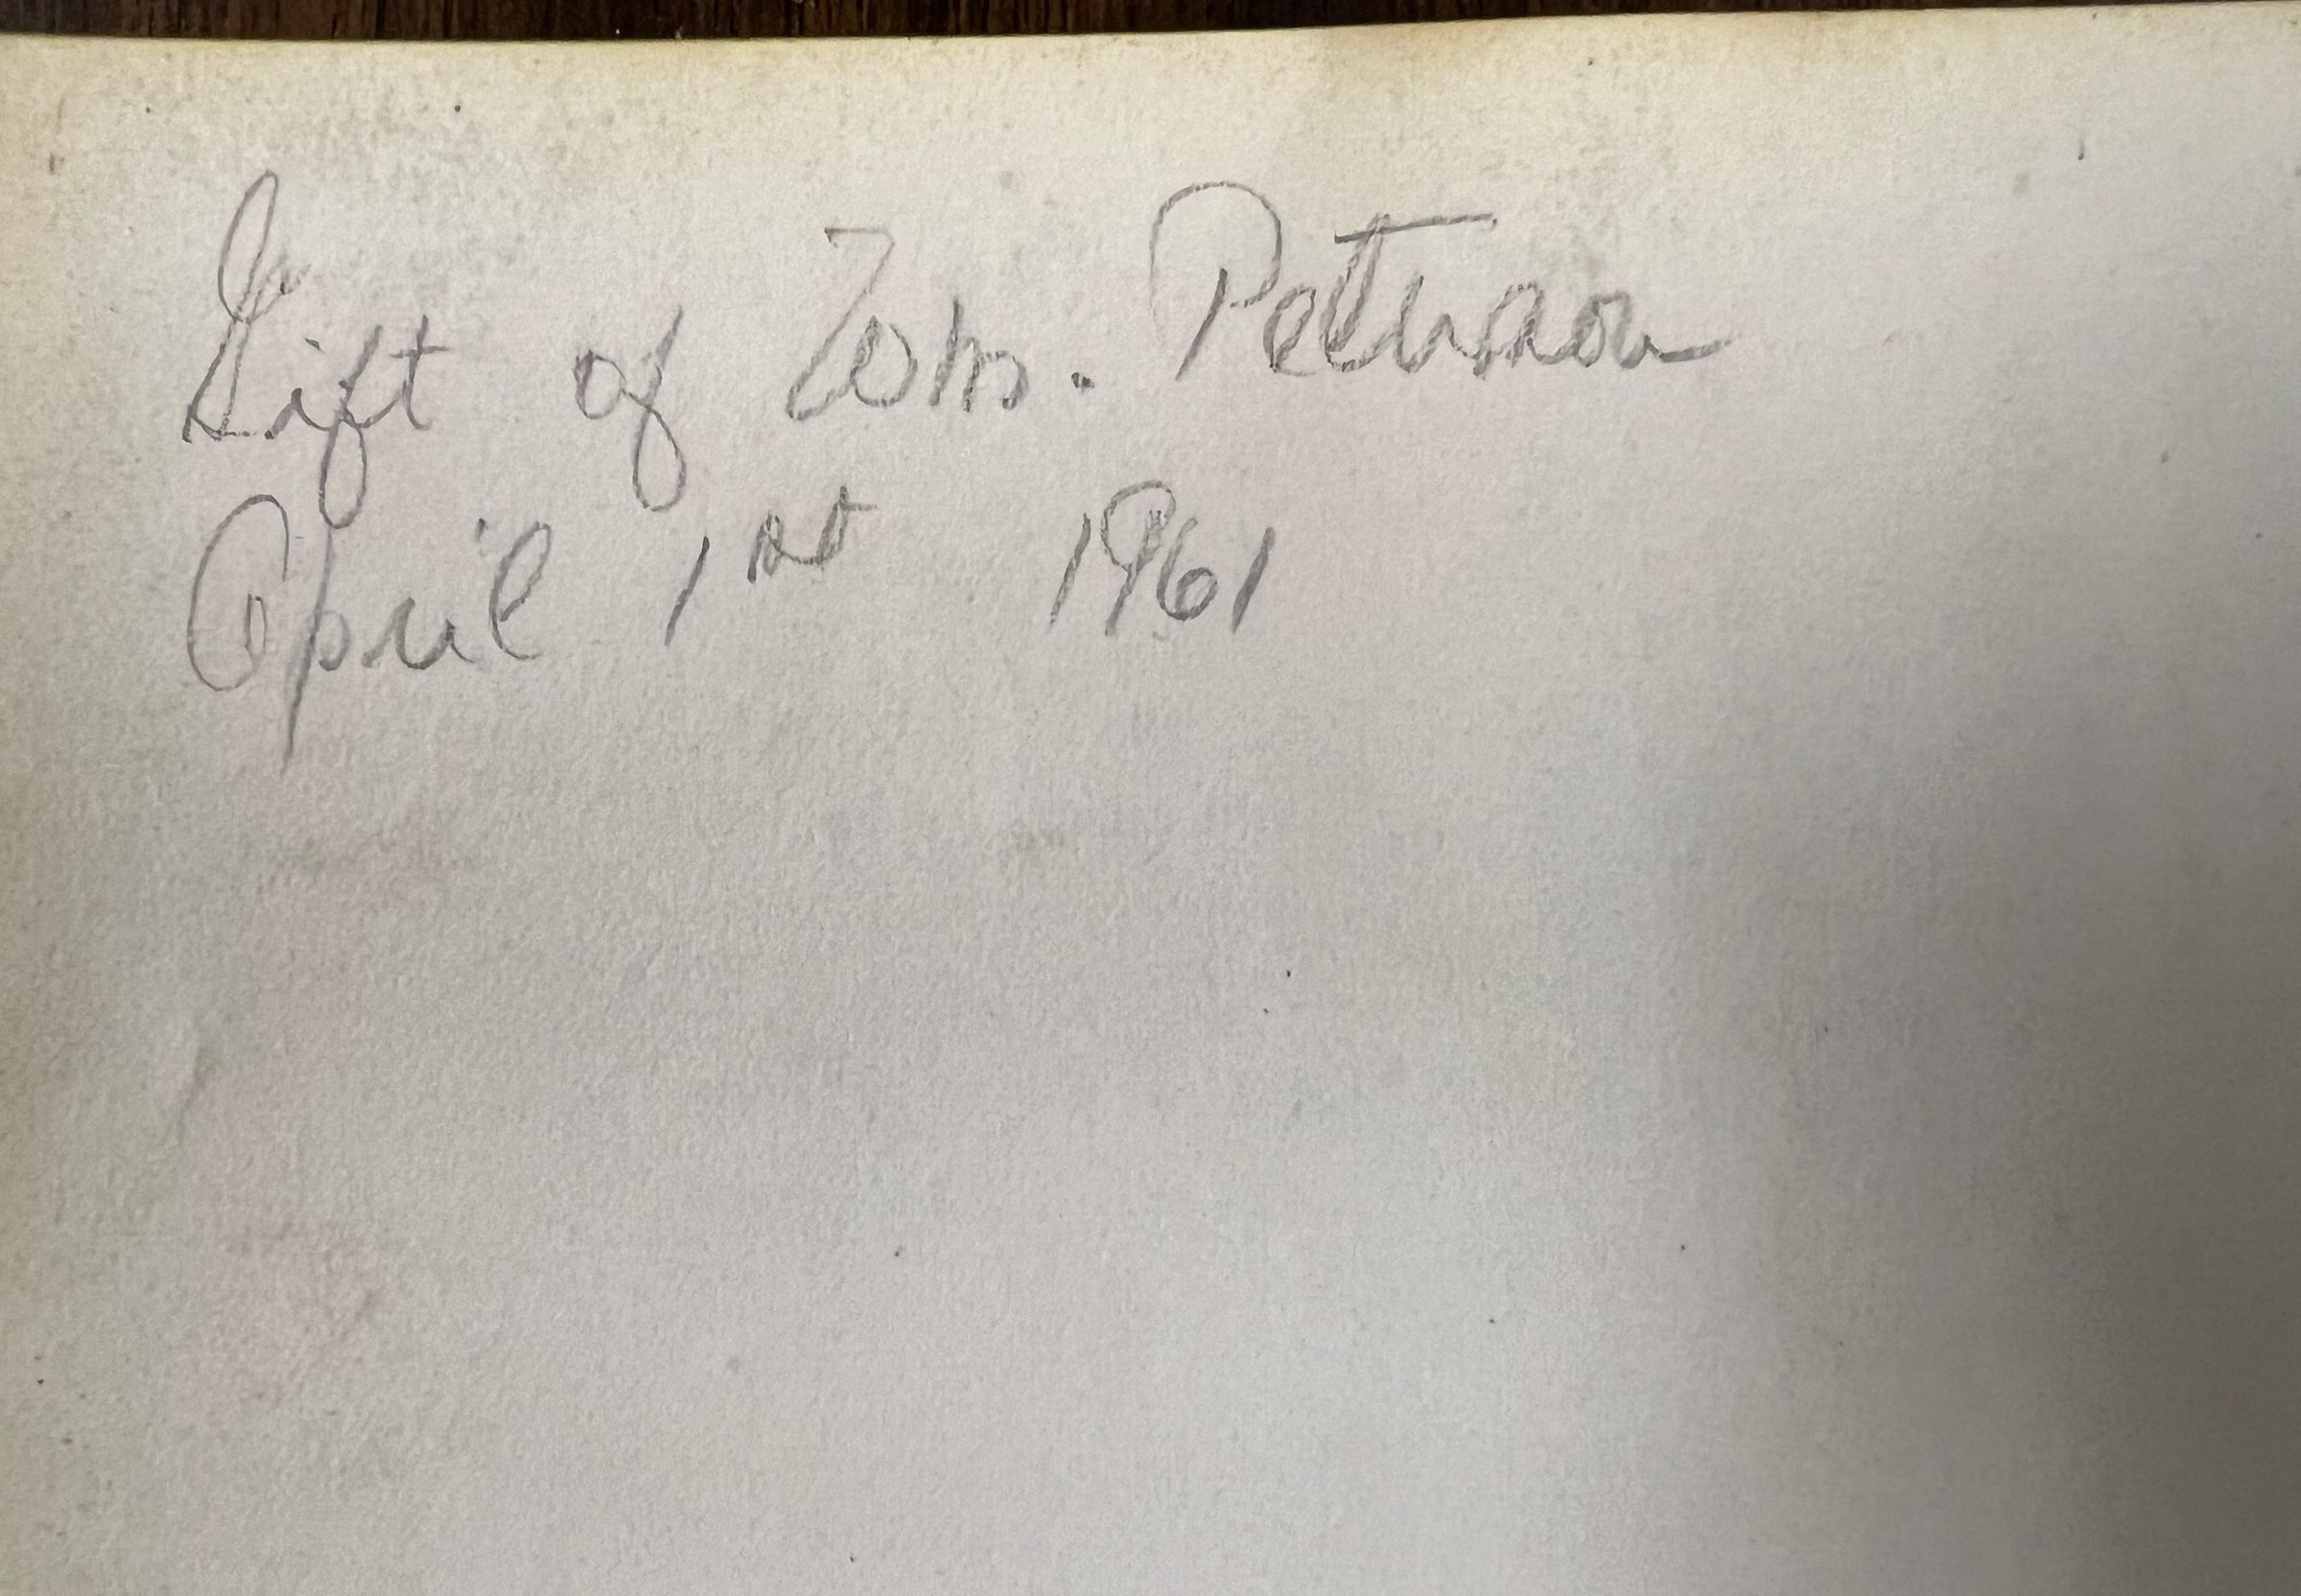 Gift of Wm. Peterson
April 1st 1961